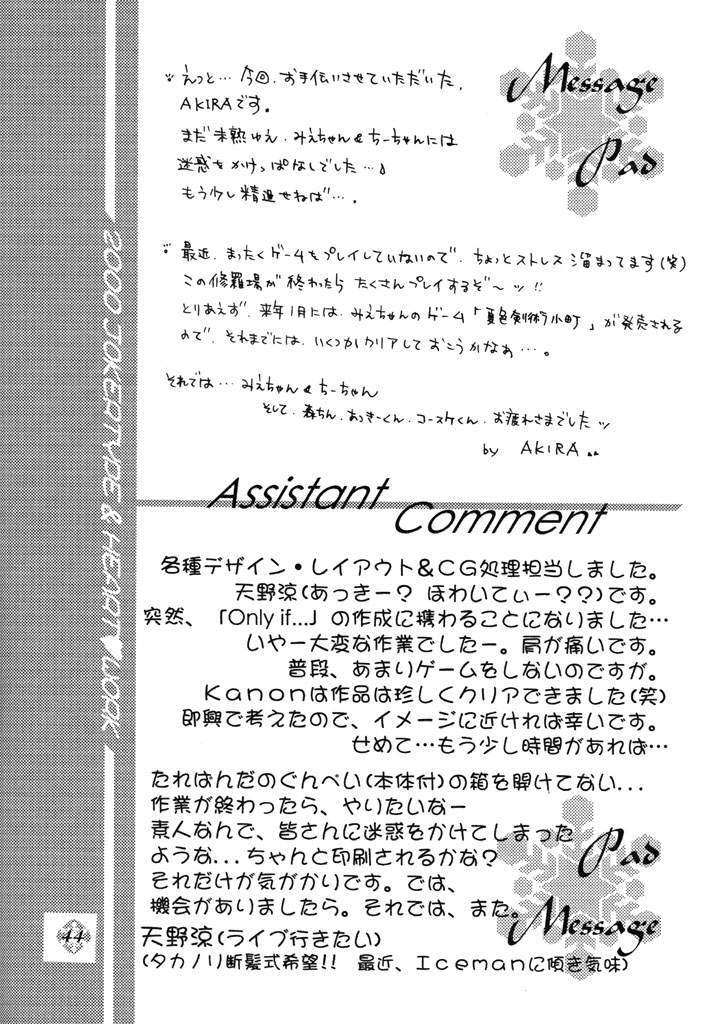 Message
Pad
えっと… 今回、お手伝いさせていただいた、
AKIRAです。
まだ未熟ゆえ、みえちゃん&ちーちゃんには
迷惑をかけっぱなしでした…♪
もう少し精進せねば…。
最近、まったくゲームをプレイしていないので、ちょっとストレス溜まってます(笑)
この修羅場が終わったらたくさんプレイするぞ〜ッ!!
とりあえず、来年1月には、みえちゃんのゲーム「夏色剣術小町」が発売される
ので、それまでには、いくつかクリアしておこうかなぁ…。
それでは… みえちゃん&ちーちゃん
そして、森ちん、あっきーくん、コースケくん、お疲れさまでしたッ
by AKIRA
2000 JOKERTYPE & HEART♥WORK
Assistant
Comment
各種デザイン・レイアウト&CG処理担当しました。
天野涼(あっきー? ほわいてぃー??)です。
突然、「Only if...」の作成に携わることになりました…
いやー大変な作業でしたー。肩が痛いです。
普段、あまりゲームをしないのですが。
Kanonは作品は珍しくクリアできました(笑)
即興で考えたので、イメージに近ければ幸いです。
せめて…もう少し時間があれば…
たれぱんだのぐんぺい(本体付)の箱を開けてない...
作業が終わったら、やりたいなー
素人なんで、皆さんに迷惑をかけてしまった
ような...ちゃんと印刷されるかな?
それだけが気がかりです。では、
機会がありましたら。それでは、また。
天野涼(ライブ行きたい)
(タカノリ断髪式希望!! 最近、Icemanに傾き気味)
Pad
Message
44